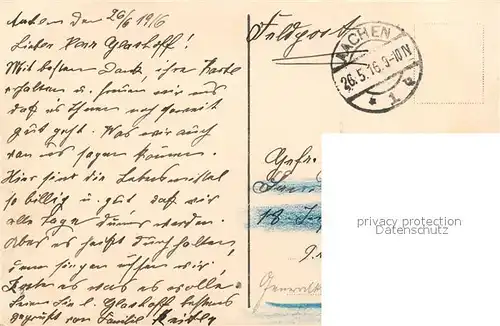 Aachen den 26/5 1916
Lieber Herr Glashoff!
Mit besten Dank, ihre Karte
erhalten u. freuen wir uns
daß es Ihnen noch soweit
gut geht. Was wir auch
von uns sagen können.
Hier sind die Lebensmittel
so billig u. gut daß wir
alle Tage dünner werden.
Aber es heißt durchhalten,
denn siegen müssen wir
Koste es was es wolle
Seien Sie l. Glashoff bestens
gegrüßt von Familie
Feldpost
AACHEN
26.5.16.9-10V
* 1
Gefr.
18. I
privacy protection
Datenschutz